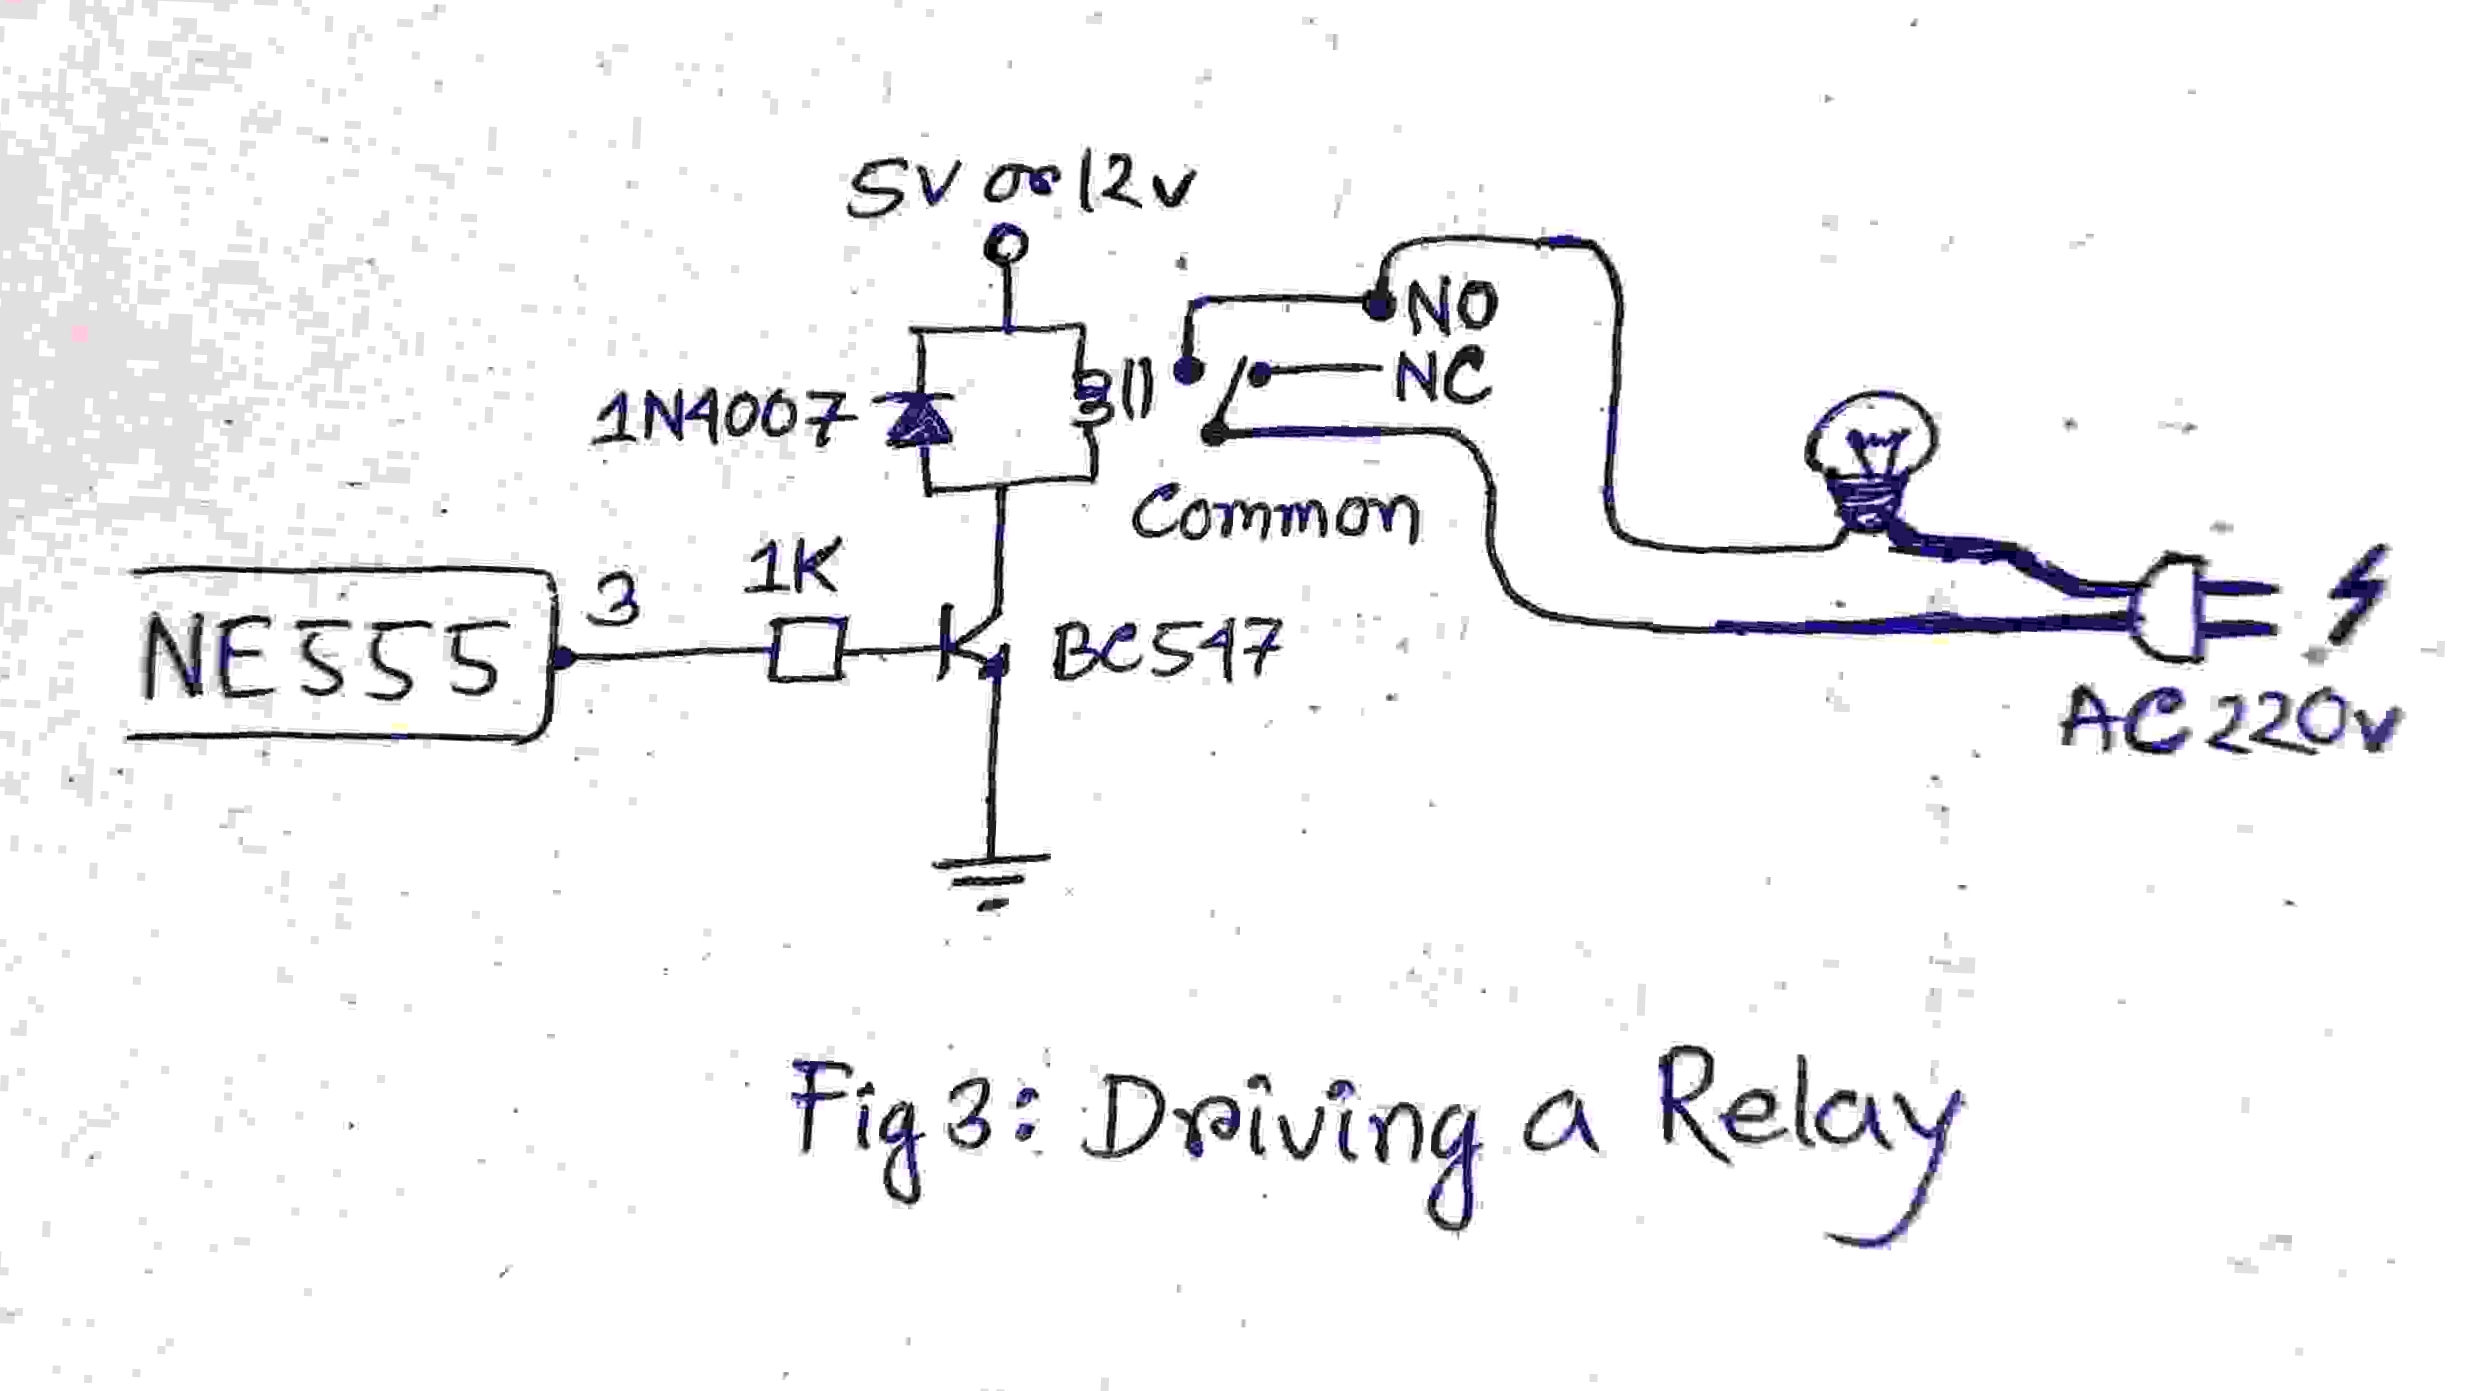 5V or 12v
NO
NC
1N4007
Common
1K
3
NE555
BC547
AC 220v
Fig 3: Driving a Relay